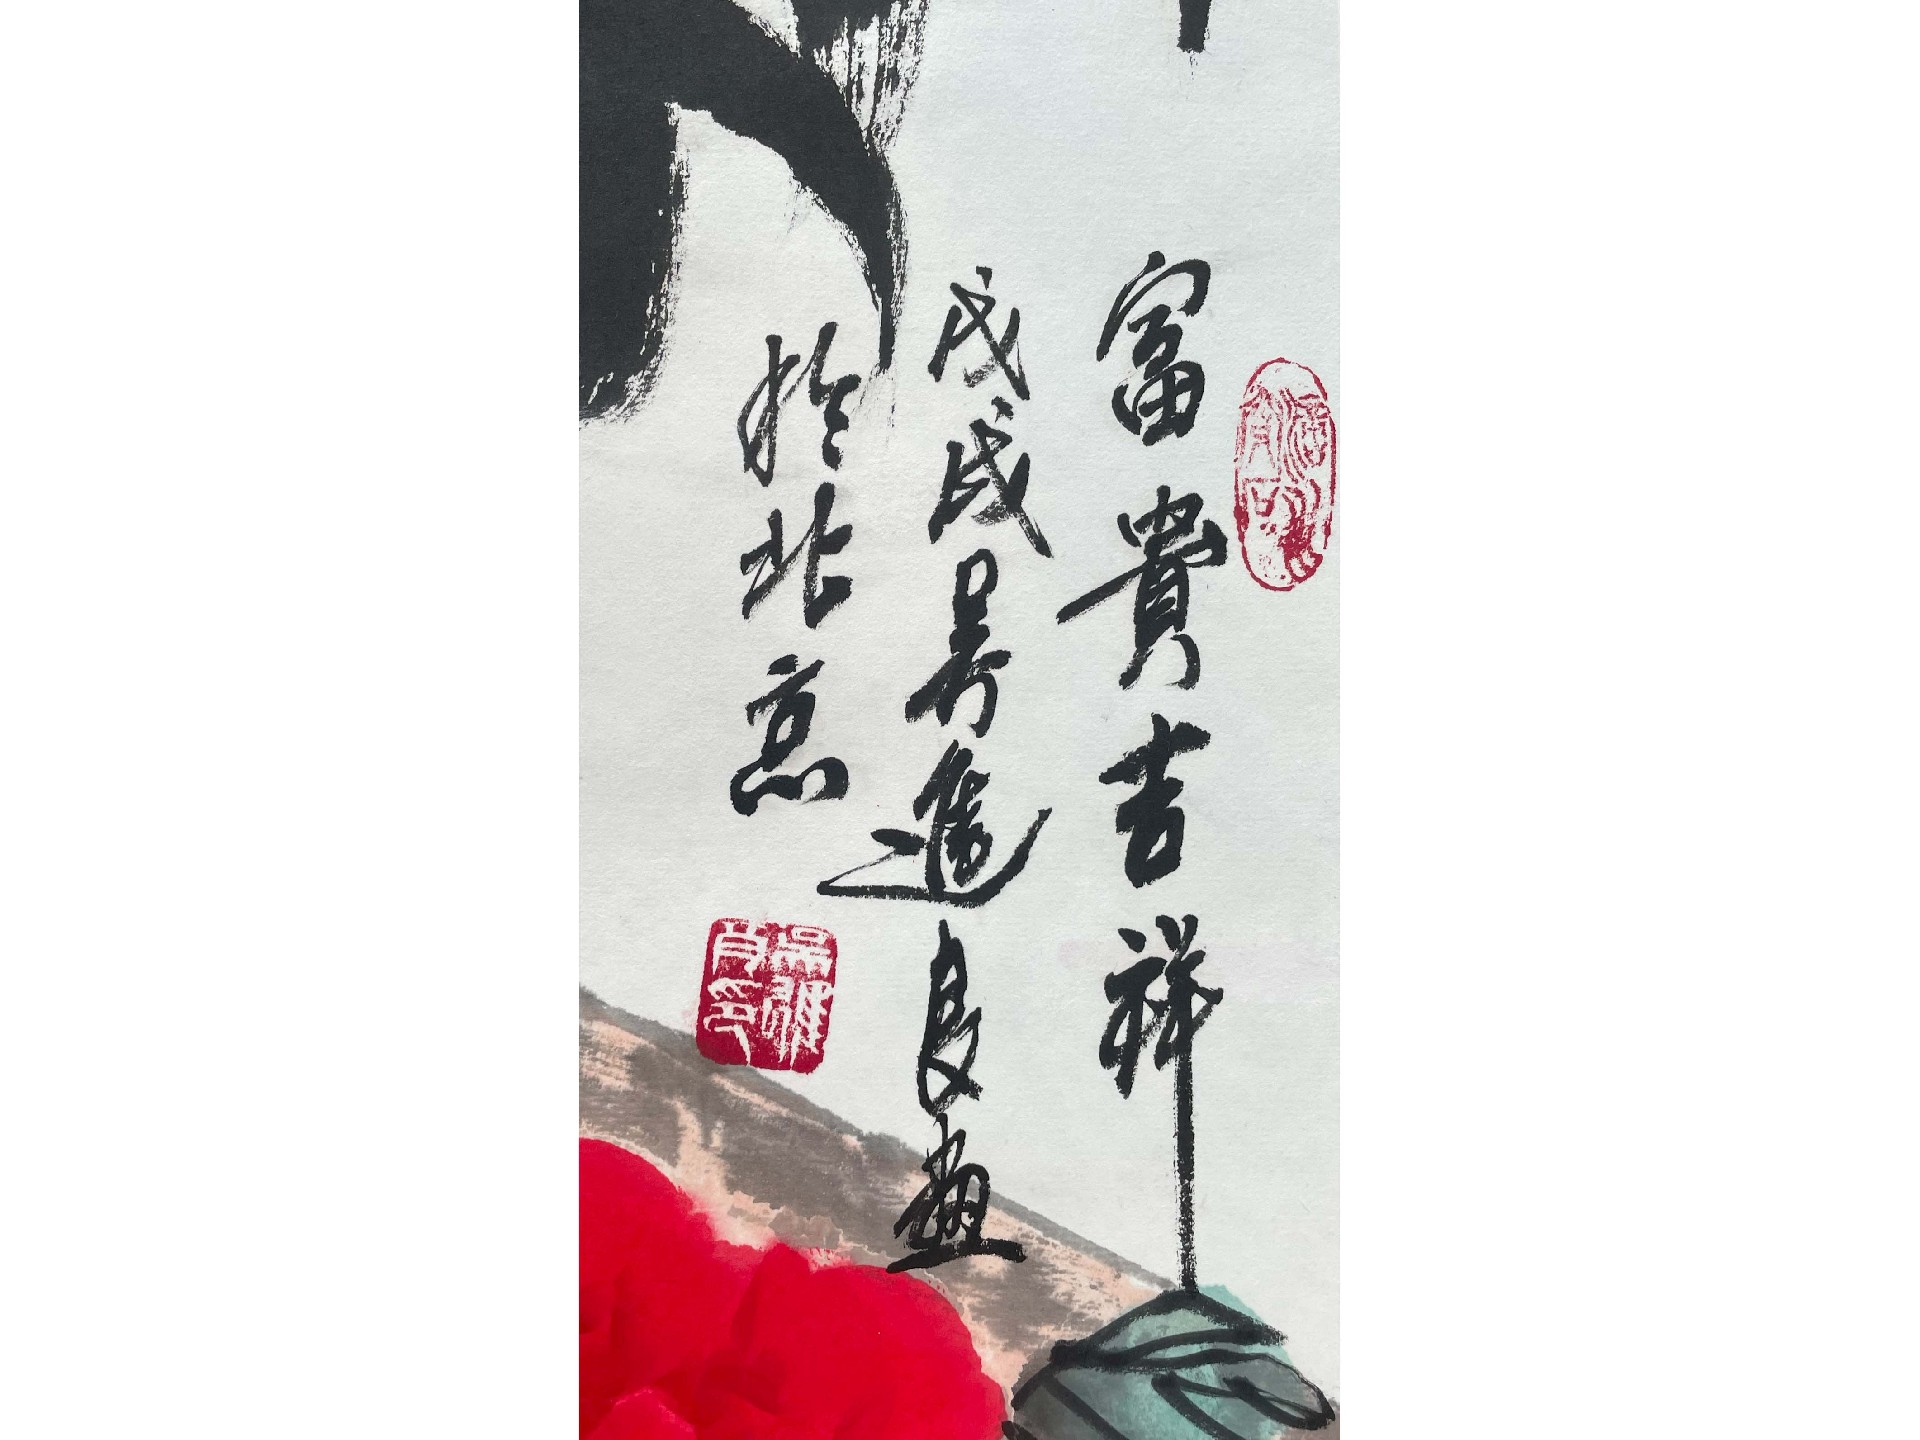 富貴吉祥
戊戌吳進良畫
於北京
吳進良印